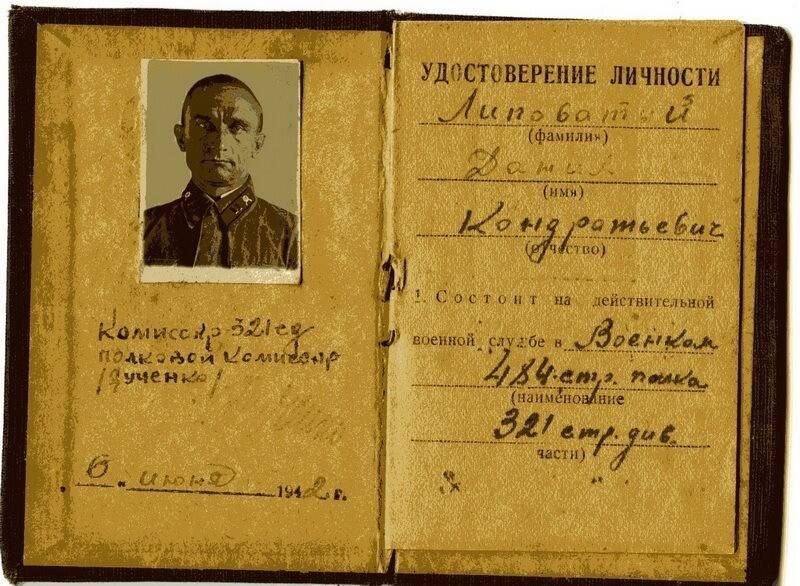 Комиссар 321 сд
полковой комиссар
/Лученко/
"6" июня 1942 г.
УДОСТОВЕРЕНИЕ ЛИЧНОСТИ
Липоватый
(фамилия)
Данил
(имя)
Кондратьевич
(отчество)
1. Состоит на действительной
военной службе в Военком
484 стр. полка
(наименование
321 стр. див.
части)